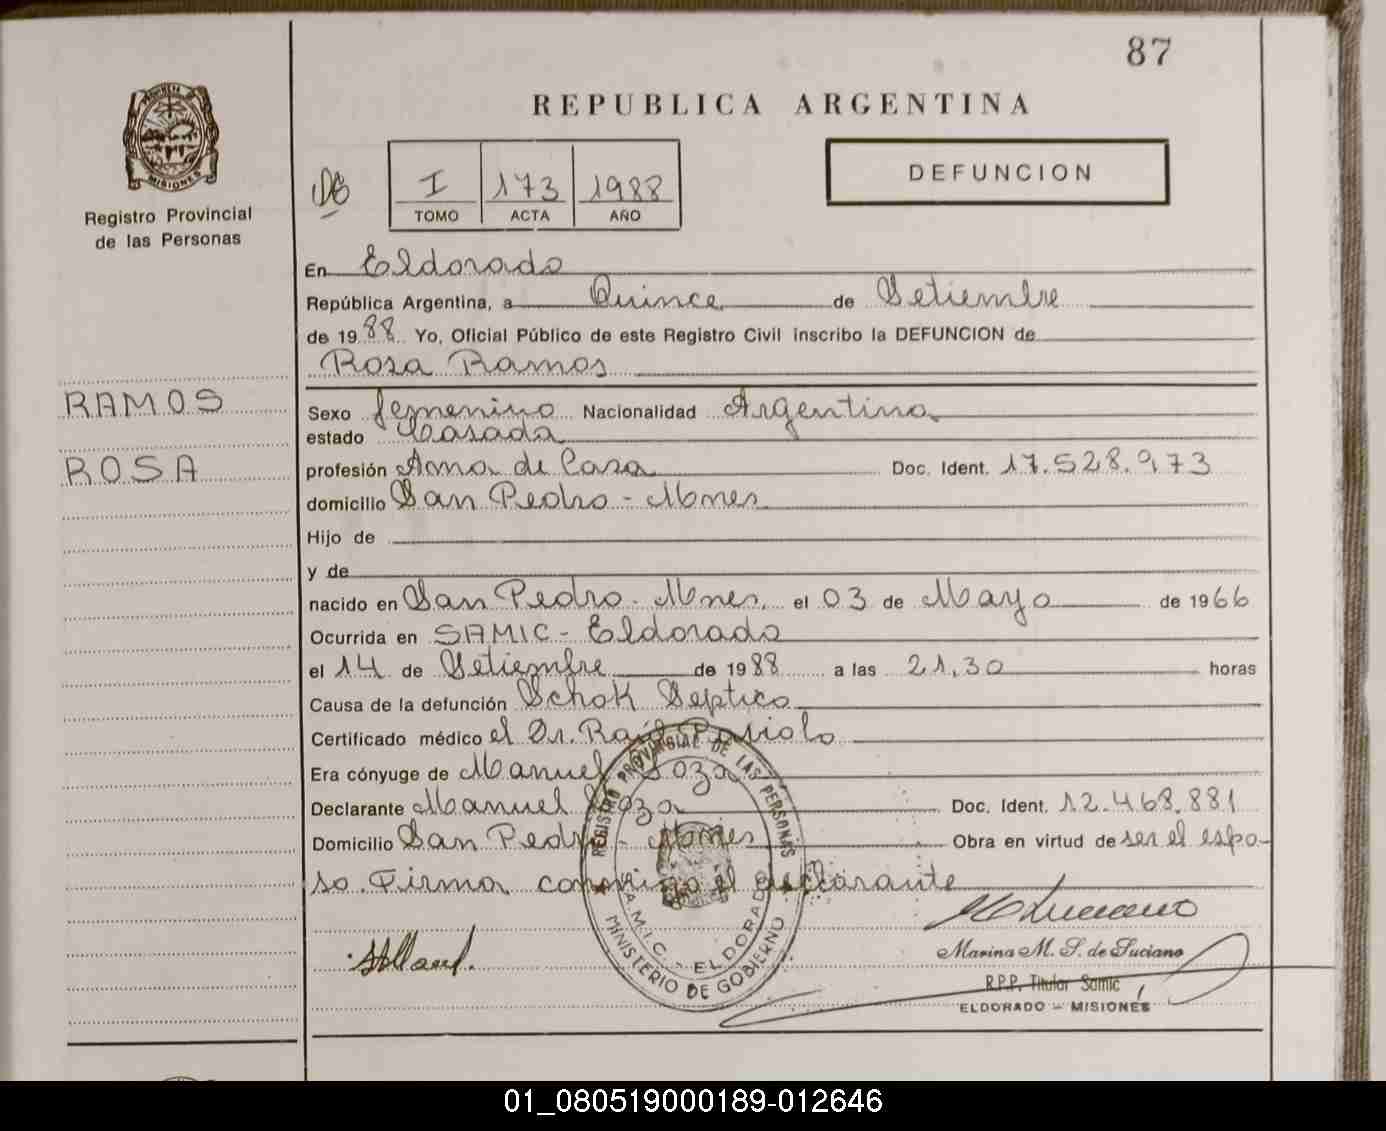 87
REPUBLICA ARGENTINA
PROVINCIA DE MISIONES
Registro Provincial
de las Personas
I 173 1988
TOMO ACTA AÑO
DEFUNCION
En Eldorado
República Argentina, a Quince de Setiembre
de 1988. Yo, Oficial Público de este Registro Civil inscribo la DEFUNCION de
Rosa Ramos
RAMOS
ROSA
Sexo femenino Nacionalidad Argentina
estado Casada
profesión Ama de Casa Doc. Ident. 17.528.973
domicilio San Pedro - Mnes
Hijo de
y de
nacido en San Pedro - Mnes. el 03 de Mayo de 1966
Ocurrida en SAMIC - Eldorado
el 14 de Setiembre de 1988 a las 21,30 horas
Causa de la defunción Schok Septico
Certificado médico el Dr. Raúl
Era cónyuge de Manuel Soza
Declarante Manuel Soza Doc. Ident. 12.468.881
Domicilio San Pedro - Mnes Obra en virtud de ser el espo-
so. Firma conmigo el declarante
REGISTRO PROVINCIAL DE LAS PERSONAS
S.A.M.I.C. - ELDORADO
MINISTERIO DE GOBIERNO
Marina M. S. de Luciano
R.P.P. Titular Samic
ELDORADO - MISIONES
01_080519000189-012646